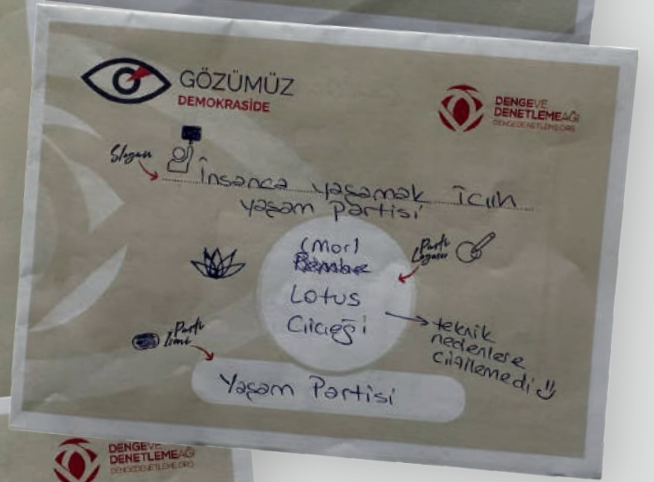 GÖZÜMÜZ
DEMOKRASİDE
DENGEVE
DENETLEMEAĞI
DENGEDENETLEME.ORG
Slogan
İnsanca yaşamak İçin
Yaşam Partisi
(Mor)
Pembe
Lotus
Çiçeği
Parti
Logosu
teknik
nedenlere
çizilemedi
Parti
İsmi
Yaşam Partisi
DENGEVE
DENETLEMEAĞI
DENGEDENETLEME.ORG